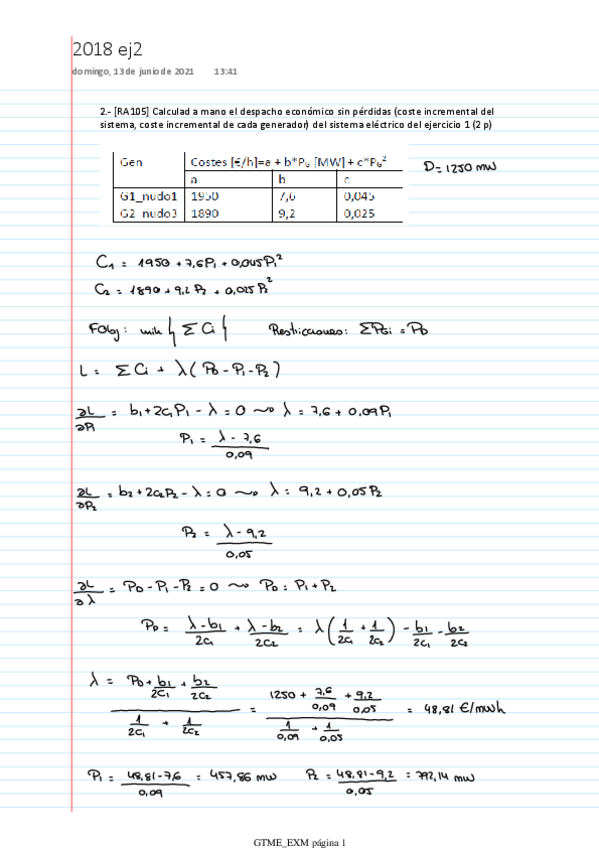 2018 ej2
domingo, 13 de junio de 2021 13:41
2.- [RA105] Calculad a mano el despacho económico sin pérdidas (coste incremental del
sistema, coste incremental de cada generador) del sistema eléctrico del ejercicio 1 (2 p)
Gen Costes [€/h]=a + b*PG [MW] + c*PG²
a b c
G1_nudo1 1950 7,6 0,045
G2_nudo3 1890 9,2 0,025
D = 1250 MW
C1 = 1950 + 7,6P1 + 0,045P1²
C2 = 1890 + 9,2 P2 + 0,025 P2²
FObj: min { Σ Ci } Restricciones: ΣPGi = PD
L = ΣCi + λ(PD - P1 - P2)
∂L/∂P1 = b1 + 2c1P1 - λ = 0 ~> λ = 7,6 + 0,09P1
P1 = (λ - 7,6)/0,09
∂L/∂P2 = b2 + 2c2P2 - λ = 0 ~> λ = 9,2 + 0,05P2
P2 = (λ - 9,2)/0,05
∂L/∂λ = PD - P1 - P2 = 0 ~> PD = P1 + P2
PD = (λ-b1)/2c1 + (λ-b2)/2c2 = λ(1/2c1 + 1/2c2) - b1/2c1 - b2/2c2
λ = (PD + b1/2c1 + b2/2c2)/(1/2c1 + 1/2c2) = (1250 + 7,6/0,09 + 9,2/0,05)/(1/0,09 + 1/0,05) = 48,81 €/MWh
P1 = (48,81-7,6)/0,09 = 457,86 MW P2 = (48,81-9,2)/0,05 = 792,14 MW
GTME_EXM página 1